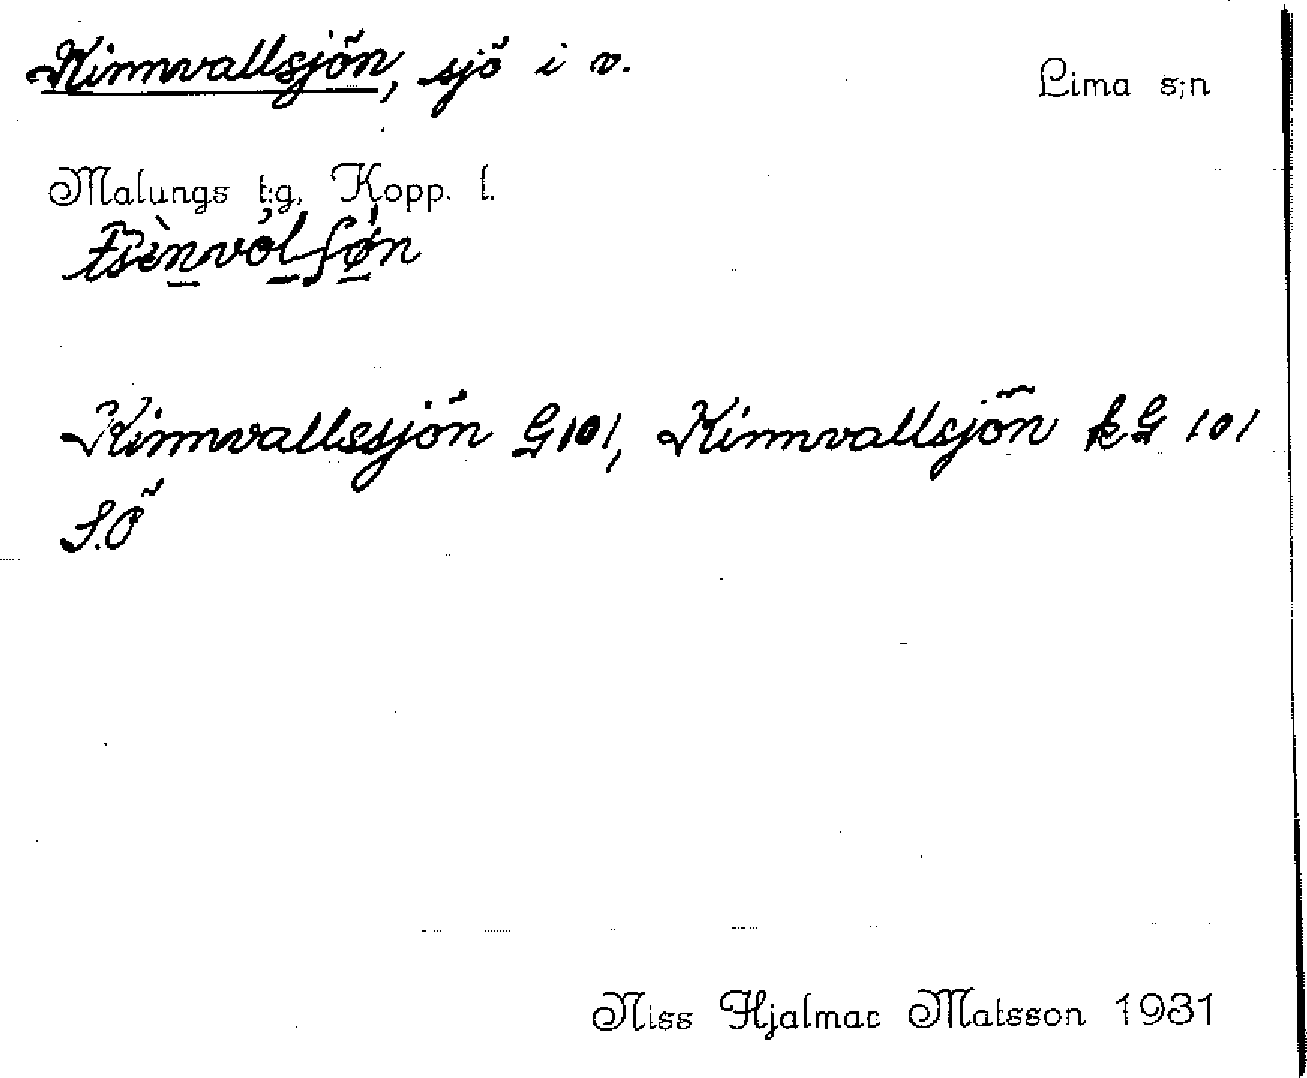 Kinnvallsjön, sjö i v.
Lima s;n
Malungs t;g. Kopp. l.
Kinnvallssjön G101, Kinnvallsjön kG 101
S.Ö
Niss Hjalmar Matsson 1931